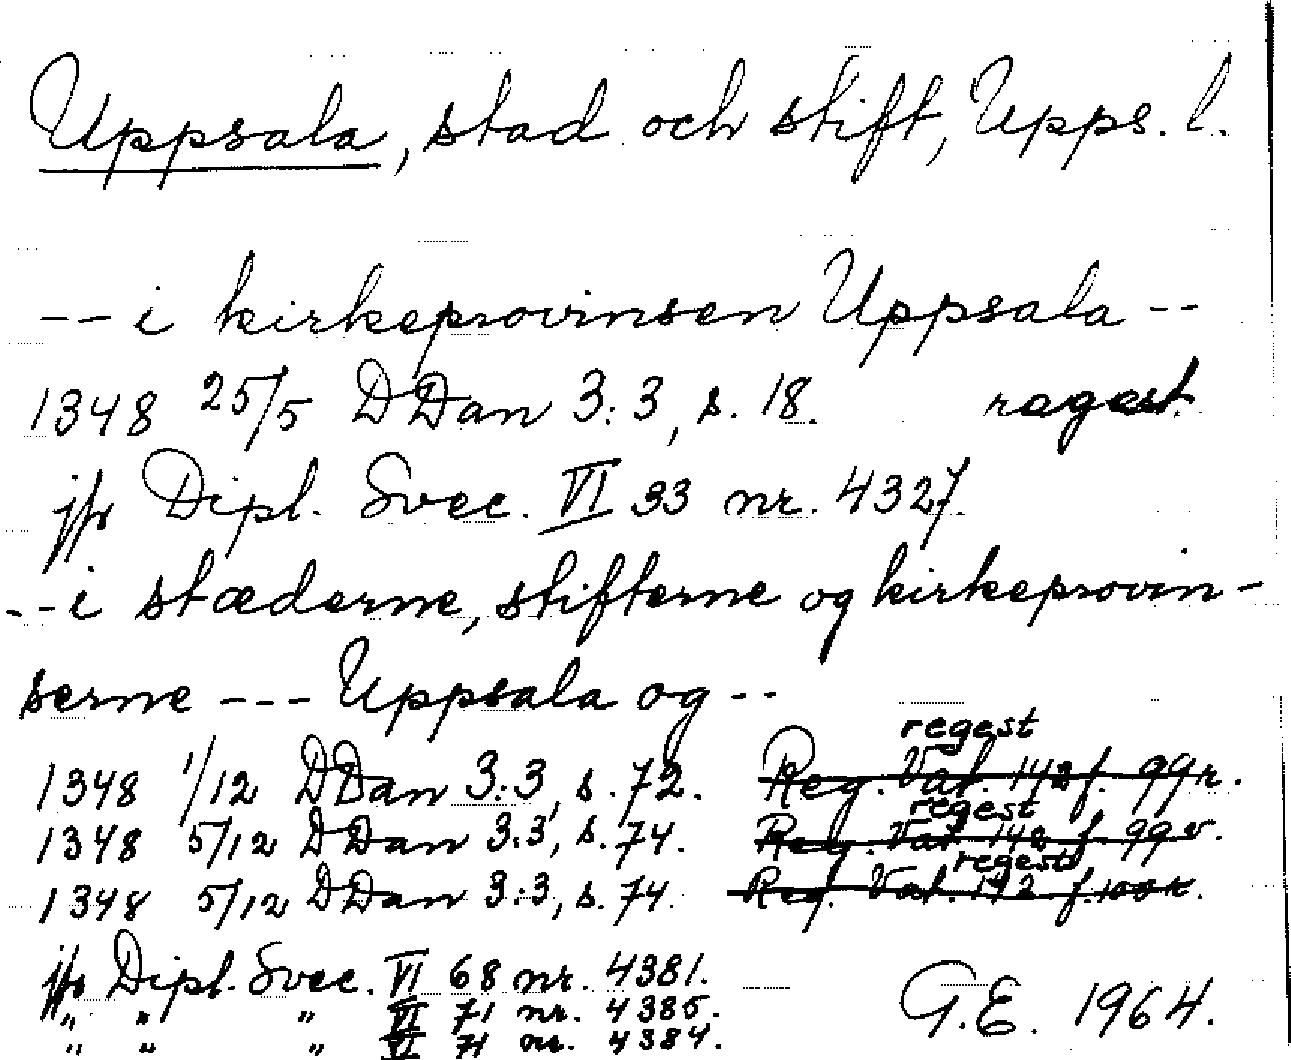 Uppsala, stad och stift, Upps. l.
-- i kirkeprovinsen Uppsala --
1348 25/5 DDan 3:3, s. 18. regest
jfr Dipl. Svec. VI 33 nr. 4327.
-- i stæderne, stifterne og kirkeprovin-
serne --- Uppsala og --
regest
1348 1/12 DDan 3:3, s. 72. Reg. Vat. 142 f. 99r.
regest
1348 5/12 DDan 3:3, s. 74. Reg. Vat. 142 f. 99v.
regest
1348 5/12 DDan 3:3, s. 74. Reg. Vat. 142 f. 100r.
jfr Dipl. Svec. VI 68 nr. 4381.
" " " VI 71 nr. 4385.
" " " VI 71 nr. 4384.
G.E. 1964.